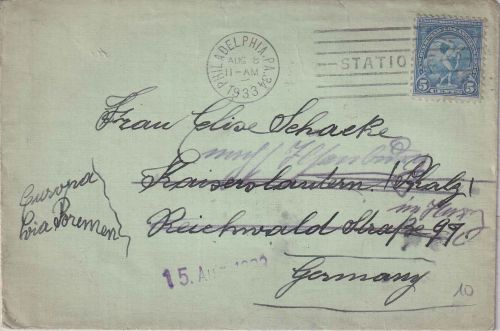 PHILADELPHIA, PA. 34
AUG 5
11-AM
1933
STATIO
5 5
Frau Elise Schacke
Kaiserslautern (Pfalz)
Reichwald Straße 97
Germany
Europa
via Bremen
15. AUG
10